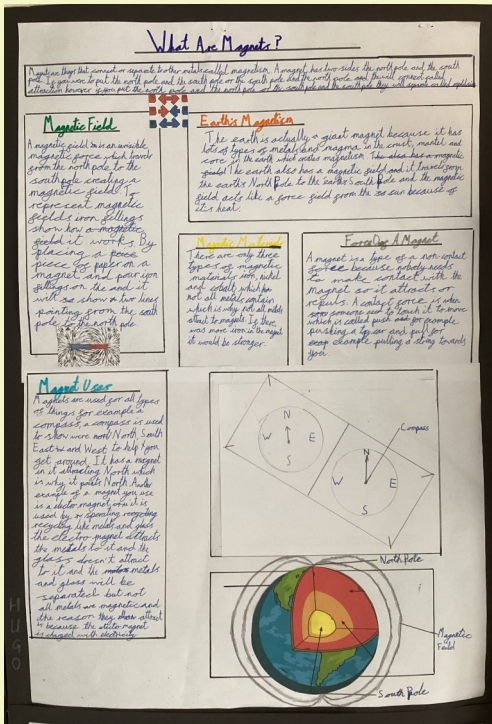 What Are Magnets?
Magnets are things that connect or separate to other metals called magnetism. A magnet has two sides the north pole and the south
pole. If you were to put the north pole and the south pole or the south pole and the north pole and they will connect called
attraction however if you put the north pole and the north pole or the south pole and the south pole they will separate called repulsion
Magnetic Field
A magnetic field is an invisible
magnetic force which travels
from the north pole to the
south pole creating a
magnetic field. To
represent magnetic
fields iron fillings
show how a magnetic
field it works. By
placing a
piece of paper on a
magnet and pour iron
fillings on the and it
will show two lines
pointing from the south
pole to the north pole
Earth's Magnetism
The earth is actually a giant magnet because it has
lots of types of metals and magma in the crust, mantel and
core of the earth which creates magnetism. The also has a magnetic
field The earth also has a magnetic field and it travels from
the earth's North Pole to the earths South Pole and the magnetic
field acts like a force field from the sun because of
it's heat.
Magnetic Materials
There are only three
types of magnetic
materials iron, nickel
and cobalt which
not all metals contain
which is why not all metals
attract to magnets. If there
was more iron in the magnet
it would be stronger.
Force Of A Magnet
A magnet is a type of a non-contact
force because nobody needs
to make contact with the
magnet so it attracts or
repels. A contact force is when
someone need to touch it to move
which is called push and for example
pushing a and pull for
example pulling a string towards
you.
Magnet Uses
Magnets are used for all types
of things for example a
compass, a compass is used
to show were north North, South
East and West to help you
get around. It has a magnet
in it attracting North which
is why it points North. Another
example of a magnet you use
is a electro magnet it is
used by separating recycling
recycling like metals and glass
the electro-magnet attracts
the metals to it and the
glass doesn't attract
to it and the metals
and glass will be
separated but not
all metals are magnetic and
the reason they attract
is because the electromagnet
is charged with electricity
N
W E
S
N
W E
S
Compass
North Pole
Magnetic
Feild
South Pole
HUGO